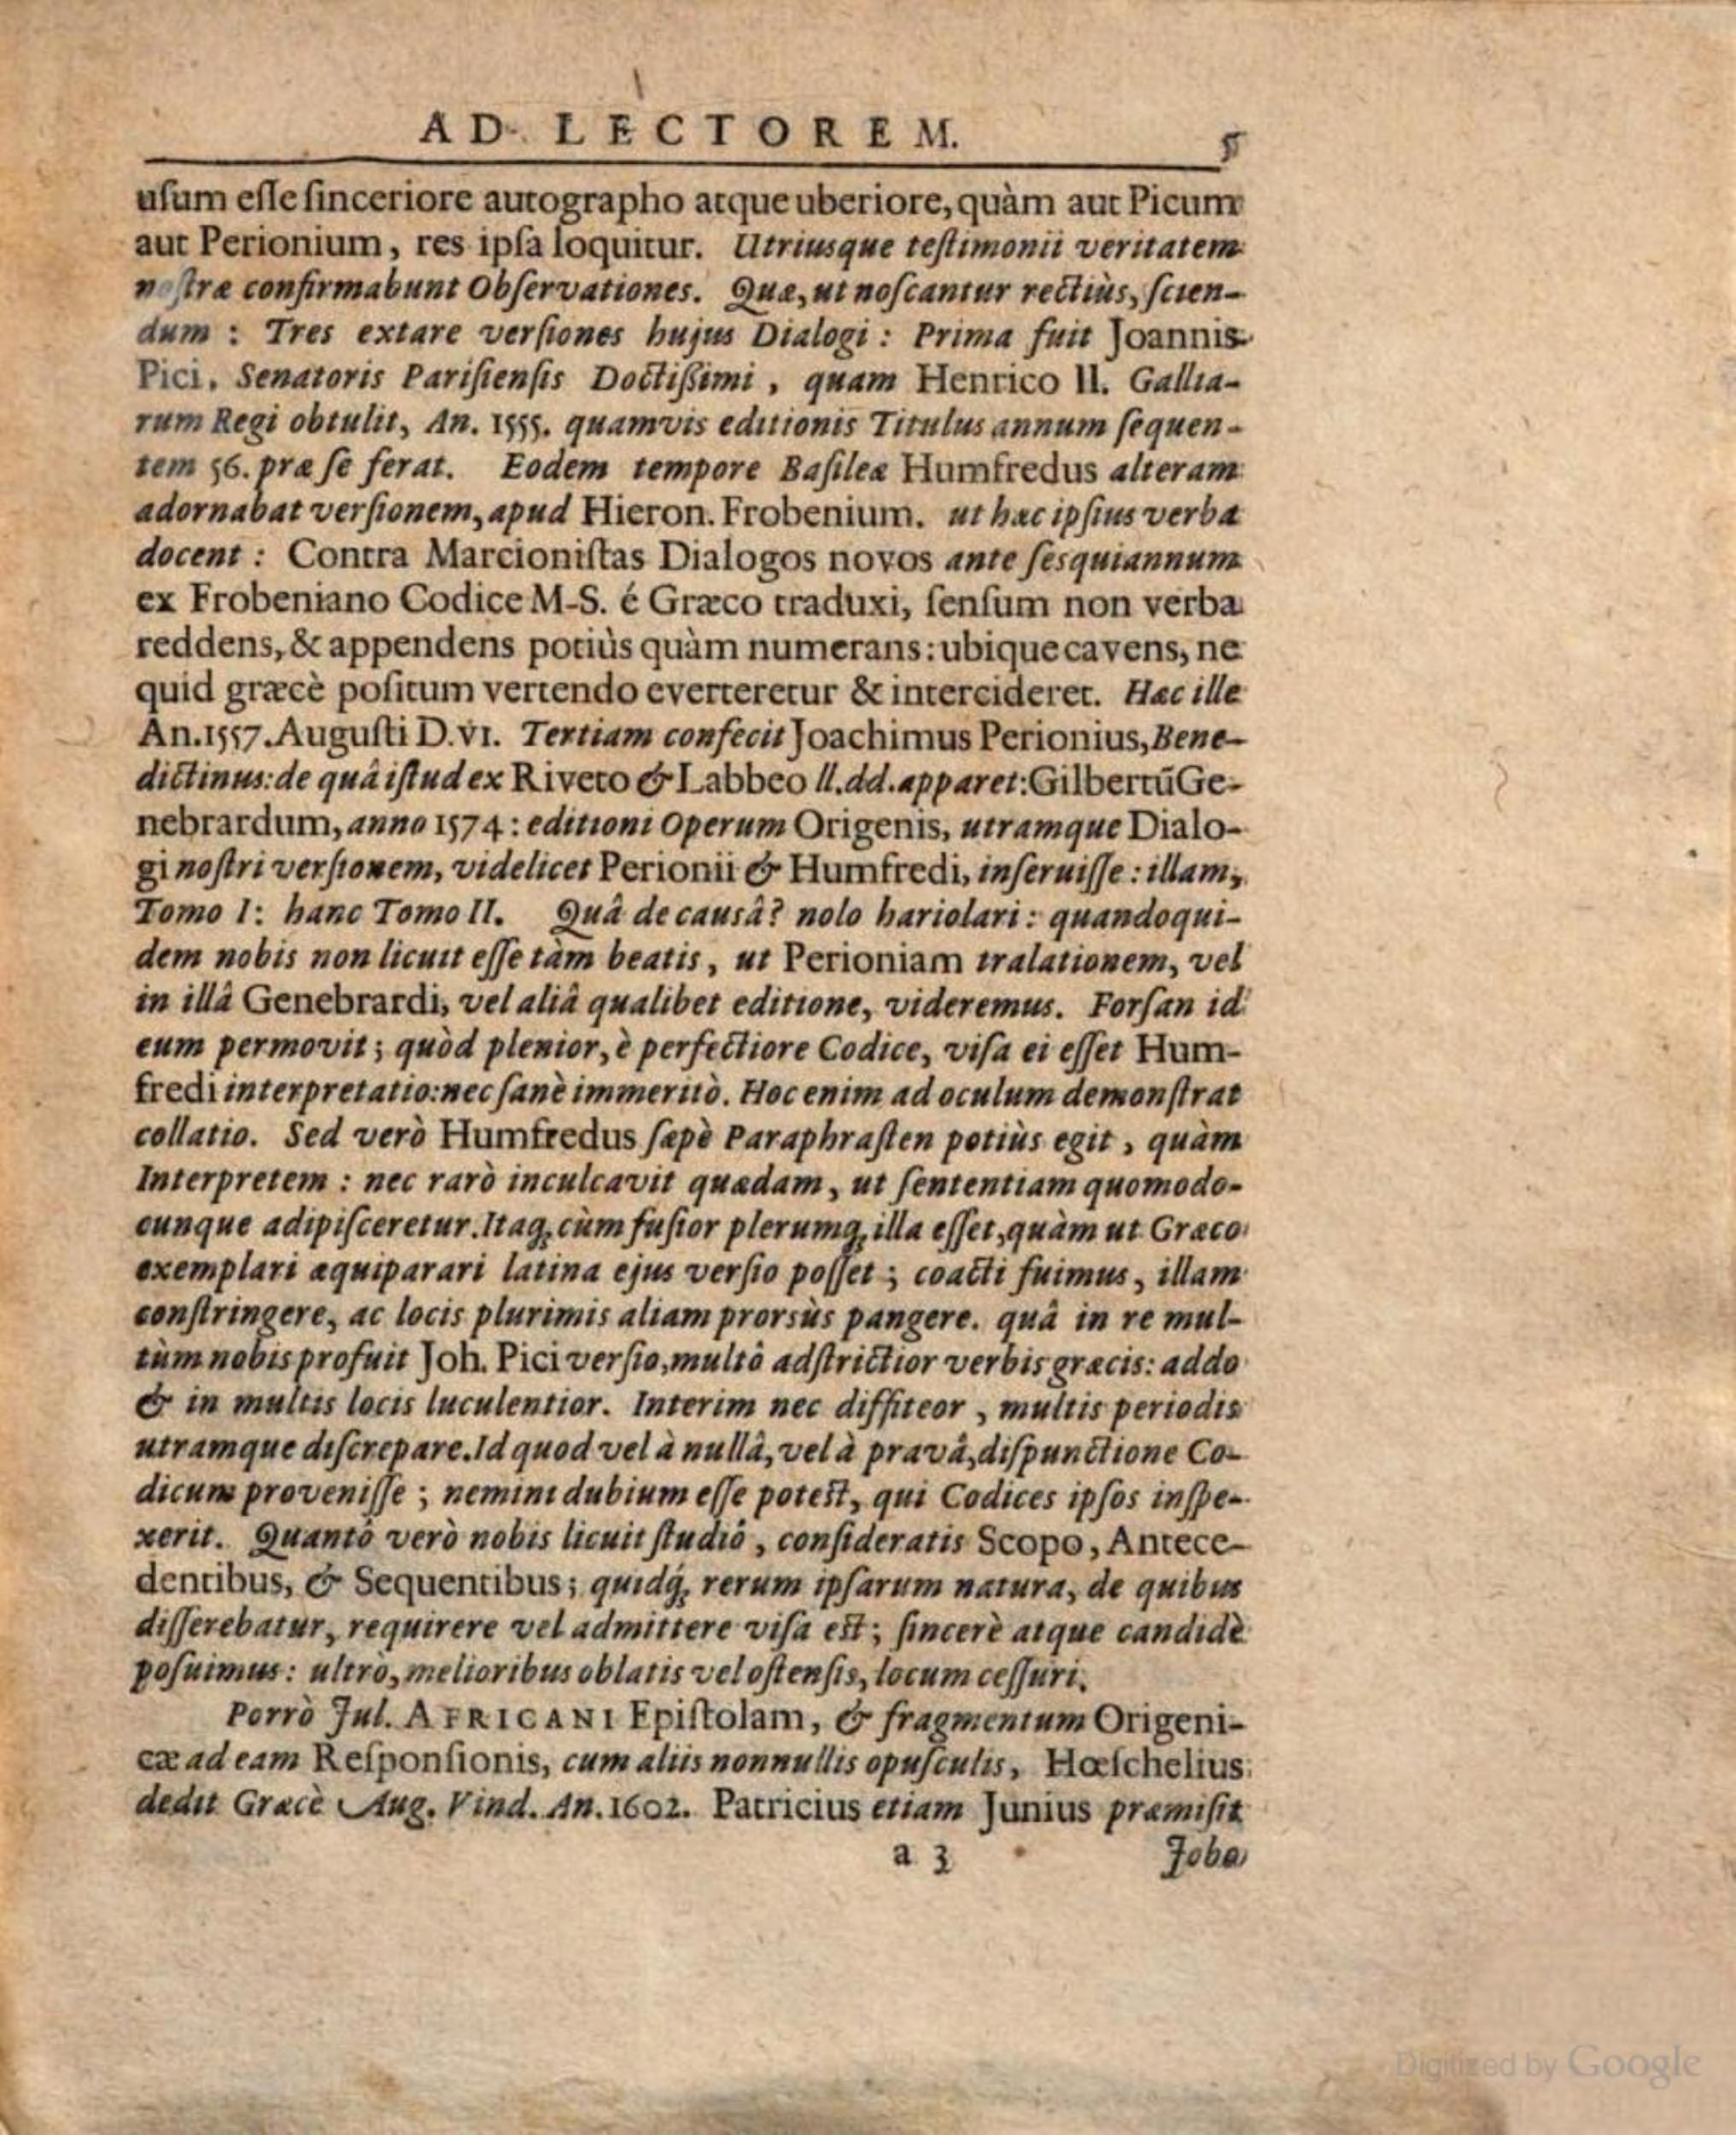 AD LECTOREM. 5
uſum eſſe ſinceriore autographo atque uberiore, quàm aut Picum
aut Perionium, res ipſa loquitur. Utriusque teſtimonii veritatem
noſtræ confirmabunt Obſervationes. Quæ, ut noſcantur rectiùs, ſcien-
dum : Tres extare verſiones hujus Dialogi : Prima fuit Joannis
Pici, Senatoris Pariſienſis Doctiſſimi, quam Henrico II. Gallia-
rum Regi obtulit, An. 1555. quamvis editionis Titulus annum ſequen-
tem 56. præ ſe ferat. Eodem tempore Baſileæ Humfredus alteram
adornabat verſionem, apud Hieron. Frobenium. ut hæc ipſius verba
docent : Contra Marcioniſtas Dialogos novos ante ſesquiannum
ex Frobeniano Codice M-S. é Græco traduxi, ſenſum non verba
reddens, & appendens potiùs quàm numerans: ubique cavens, ne
quid græcè poſitum vertendo everteretur & intercideret. Hæc ille
An. 1557. Auguſti D. VI. Tertiam confecit Joachimus Perionius, Bene-
dictinus: de quâ iſtud ex Riveto & Labbeo ll. dd. apparet: Gilbertū Ge-
nebrardum, anno 1574 : editioni Operum Origenis, utramque Dialo-
gi noſtri verſionem, videlicet Perionii & Humfredi, inſeruiſſe : illam,
Tomo I: hanc Tomo II. Quâ de causâ? nolo hariolari : quandoqui-
dem nobis non licuit eſſe tàm beatis, ut Perioniam tralationem, vel
in illâ Genebrardi, vel aliâ qualibet editione, videremus. Forſan id
eum permovit ; quòd plenior, è perfectiore Codice, viſa ei eſſet Hum-
fredi interpretatio: nec ſanè immeritò. Hoc enim ad oculum demonſtrat
collatio. Sed verò Humfredus ſæpè Paraphraſten potiùs egit, quàm
Interpretem : nec rarò inculcavit quædam, ut ſententiam quomodo-
cunque adipiſceretur. Itaq; cùm fuſior plerumq; illa eſſet, quàm ut Græco
exemplari æquiparari latina ejus verſio poſſet ; coacti fuimus, illam
conſtringere, ac locis plurimis aliam prorsùs pangere. quâ in re mul-
tùm nobis profuit Joh. Pici verſio, multô adſtrictior verbis græcis: addo
& in multis locis luculentior. Interim nec diffiteor, multis periodis
utramque diſcrepare. Id quod vel à nullâ, vel à pravâ, diſpunctione Co-
dicum proveniſſe ; nemini dubium eſſe poteſt, qui Codices ipſos inſpe-
xerit. Quantô verò nobis licuit ſtudiô, conſideratis Scopo, Antece-
dentibus, & Sequentibus ; quidq; rerum ipſarum natura, de quibus
diſſerebatur, requirere vel admittere viſa eſt ; ſincerè atque candidè
poſuimus : ultrò, melioribus oblatis vel oſtenſis, locum ceſſuri.
Porrò Jul. AFRICANI Epiſtolam, & fragmentum Origeni-
cæ ad eam Reſponſionis, cum aliis nonnullis opuſculis, Hœſchelius
dedit Græcè Aug. Vind. An. 1602. Patricius etiam Junius præmiſit
a 3 Joba
Digitized by Google